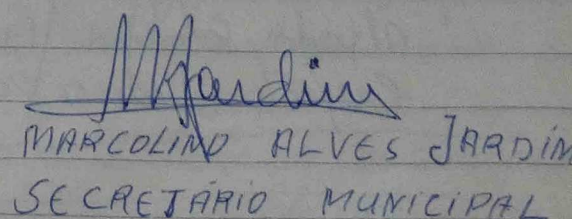 MJardim
MARCOLINO ALVES JARDIM
SECRETÁRIO MUNICIPAL